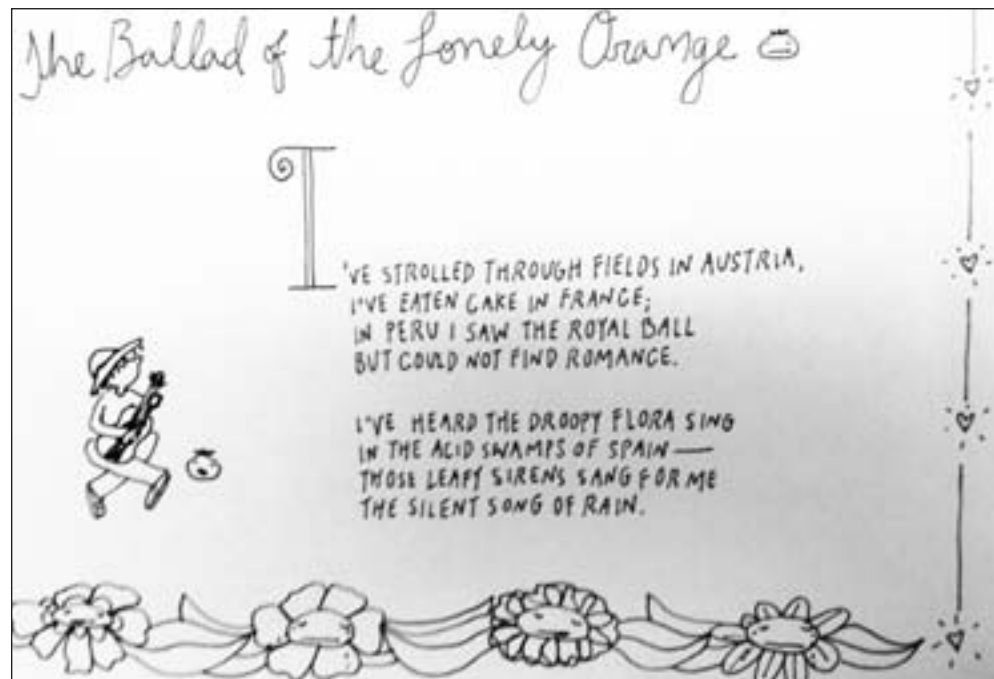 The Ballad of the Lonely Orange
I'VE STROLLED THROUGH FIELDS IN AUSTRIA,
I'VE EATEN CAKE IN FRANCE;
IN PERU I SAW THE ROYAL BALL
BUT COULD NOT FIND ROMANCE.
I'VE HEARD THE DROOPY FLORA SING
IN THE ACID SWAMPS OF SPAIN —
THOSE LEAFY SIRENS SANG FOR ME
THE SILENT SONG OF RAIN.